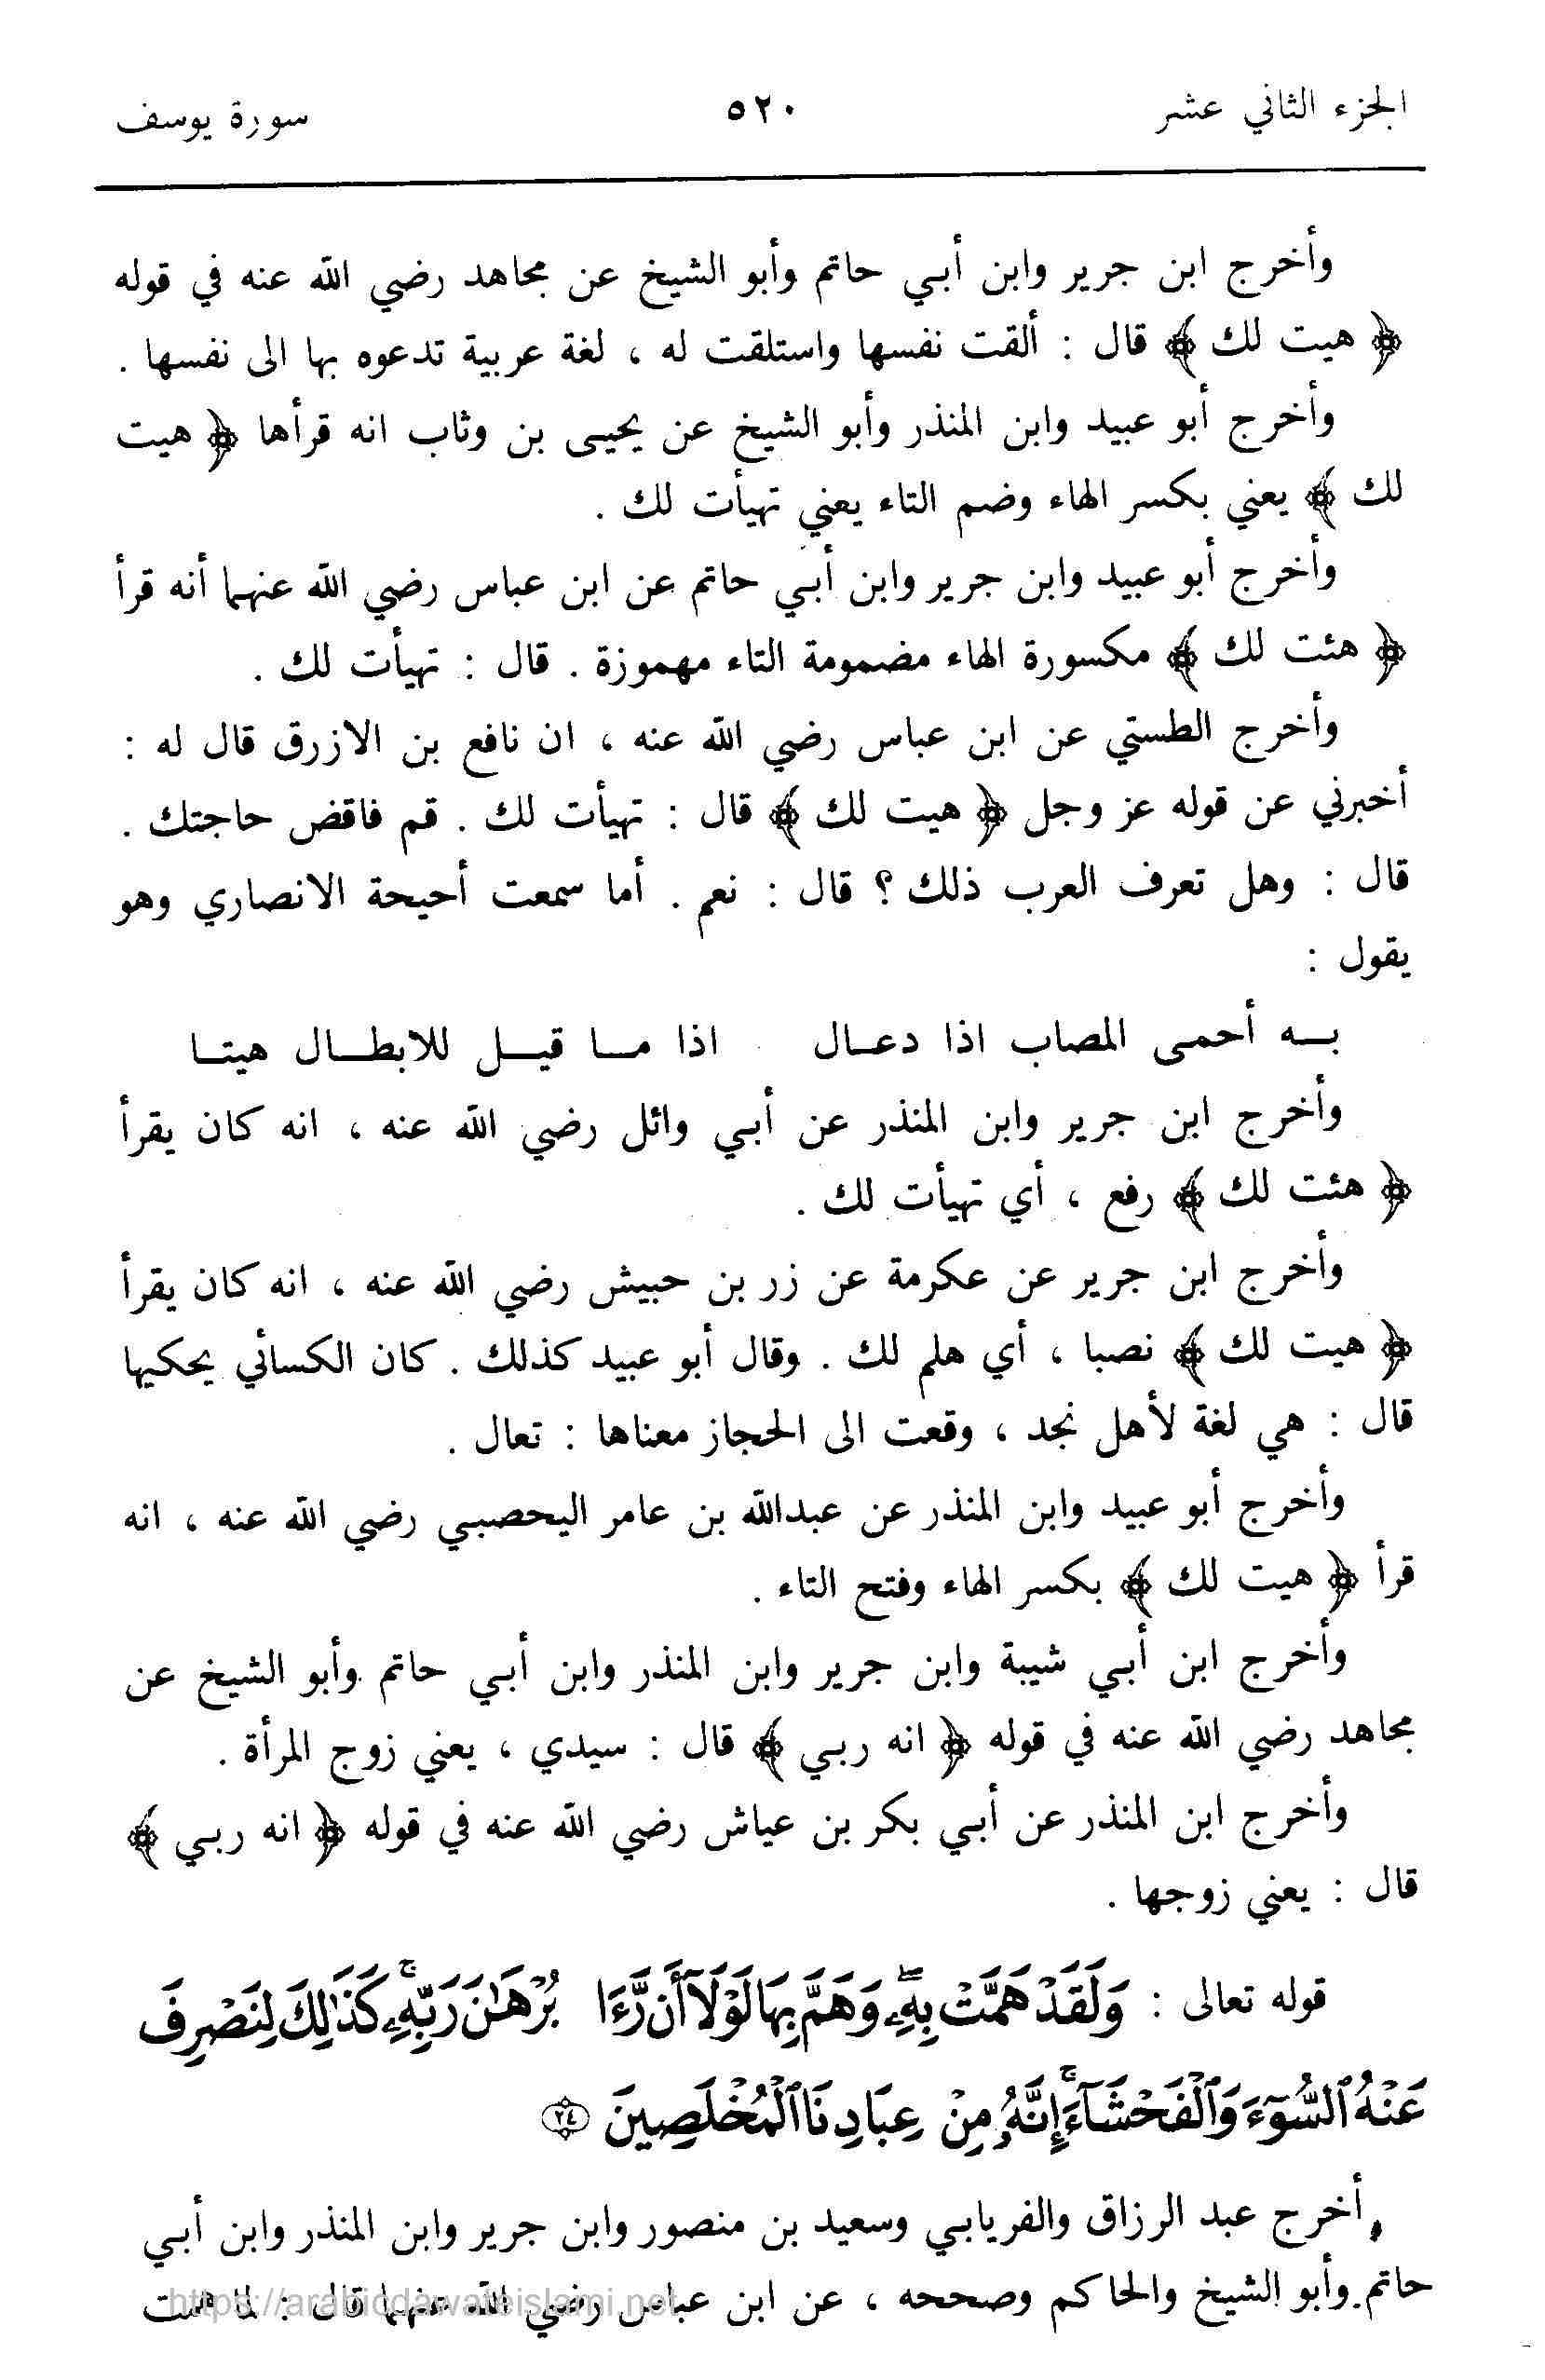 الجزء الثاني عشر ٥٢٠ سورة يوسف
وأخرج ابن جرير وابن أبي حاتم وأبو الشيخ عن مجاهد رضي الله عنه في قوله
﴿ هيت لك ﴾ قال : ألقت نفسها واستلقت له ، لغة عربية تدعوه بها الى نفسها .
وأخرج أبو عبيد وابن المنذر وأبو الشيخ عن يحيى بن وثاب انه قرأها ﴿ هيت
لك ﴾ يعني بكسر الهاء وضم التاء يعني تهيأت لك .
وأخرج أبو عبيد وابن جرير وابن أبي حاتم عن ابن عباس رضي الله عنهما أنه قرأ
﴿ هئت لك ﴾ مكسورة الهاء مضمومة التاء مهموزة . قال : تهيأت لك .
وأخرج الطستي عن ابن عباس رضي الله عنه ، ان نافع بن الازرق قال له :
أخبرني عن قوله عز وجل ﴿ هيت لك ﴾ قال : تهيأت لك . قم فاقض حاجتك .
قال : وهل تعرف العرب ذلك ؟ قال : نعم . أما سمعت أحيحة الانصاري وهو
يقول :
بـه أحمى المصاب اذا دعـال اذا مـا قيـل للابطـال هيتـا
وأخرج ابن جرير وابن المنذر عن أبي وائل رضي الله عنه ، انه كان يقرأ
﴿ هئت لك ﴾ رفع ، أي تهيأت لك .
وأخرج ابن جرير عن عكرمة عن زر بن حبيش رضي الله عنه ، انه كان يقرأ
﴿ هيت لك ﴾ نصبا ، أي هلم لك . وقال أبو عبيد كذلك . كان الكسائي يحكيها
قال : هي لغة لأهل نجد ، وقعت الى الحجاز معناها : تعال .
وأخرج أبو عبيد وابن المنذر عن عبدالله بن عامر اليحصبي رضي الله عنه ، انه
قرأ ﴿ هيت لك ﴾ بكسر الهاء وفتح التاء .
وأخرج ابن أبي شيبة وابن جرير وابن المنذر وابن أبي حاتم وأبو الشيخ عن
مجاهد رضي الله عنه في قوله ﴿ انه ربي ﴾ قال : سيدي ، يعني زوج المرأة .
وأخرج ابن المنذر عن أبي بكر بن عياش رضي الله عنه في قوله ﴿ انه ربي ﴾
قال : يعني زوجها .
قوله تعالى : وَلَقَدْ هَمَّتْ بِهِۦۖ وَهَمَّ بِهَا لَوْلَآ أَن رَّءَا بُرْهَٰنَ رَبِّهِۦۚ كَذَٰلِكَ لِنَصْرِفَ
عَنْهُ ٱلسُّوٓءَ وَٱلْفَحْشَآءَۚ إِنَّهُۥ مِنْ عِبَادِنَا ٱلْمُخْلَصِينَ ۝٢٤
أخرج عبد الرزاق والفريابي وسعيد بن منصور وابن جرير وابن المنذر وابن أبي
حاتم وأبو الشيخ والحاكم وصححه ، عن ابن عباس رضي الله عنهما قال : لما همت
https://arabicdawateislami.net